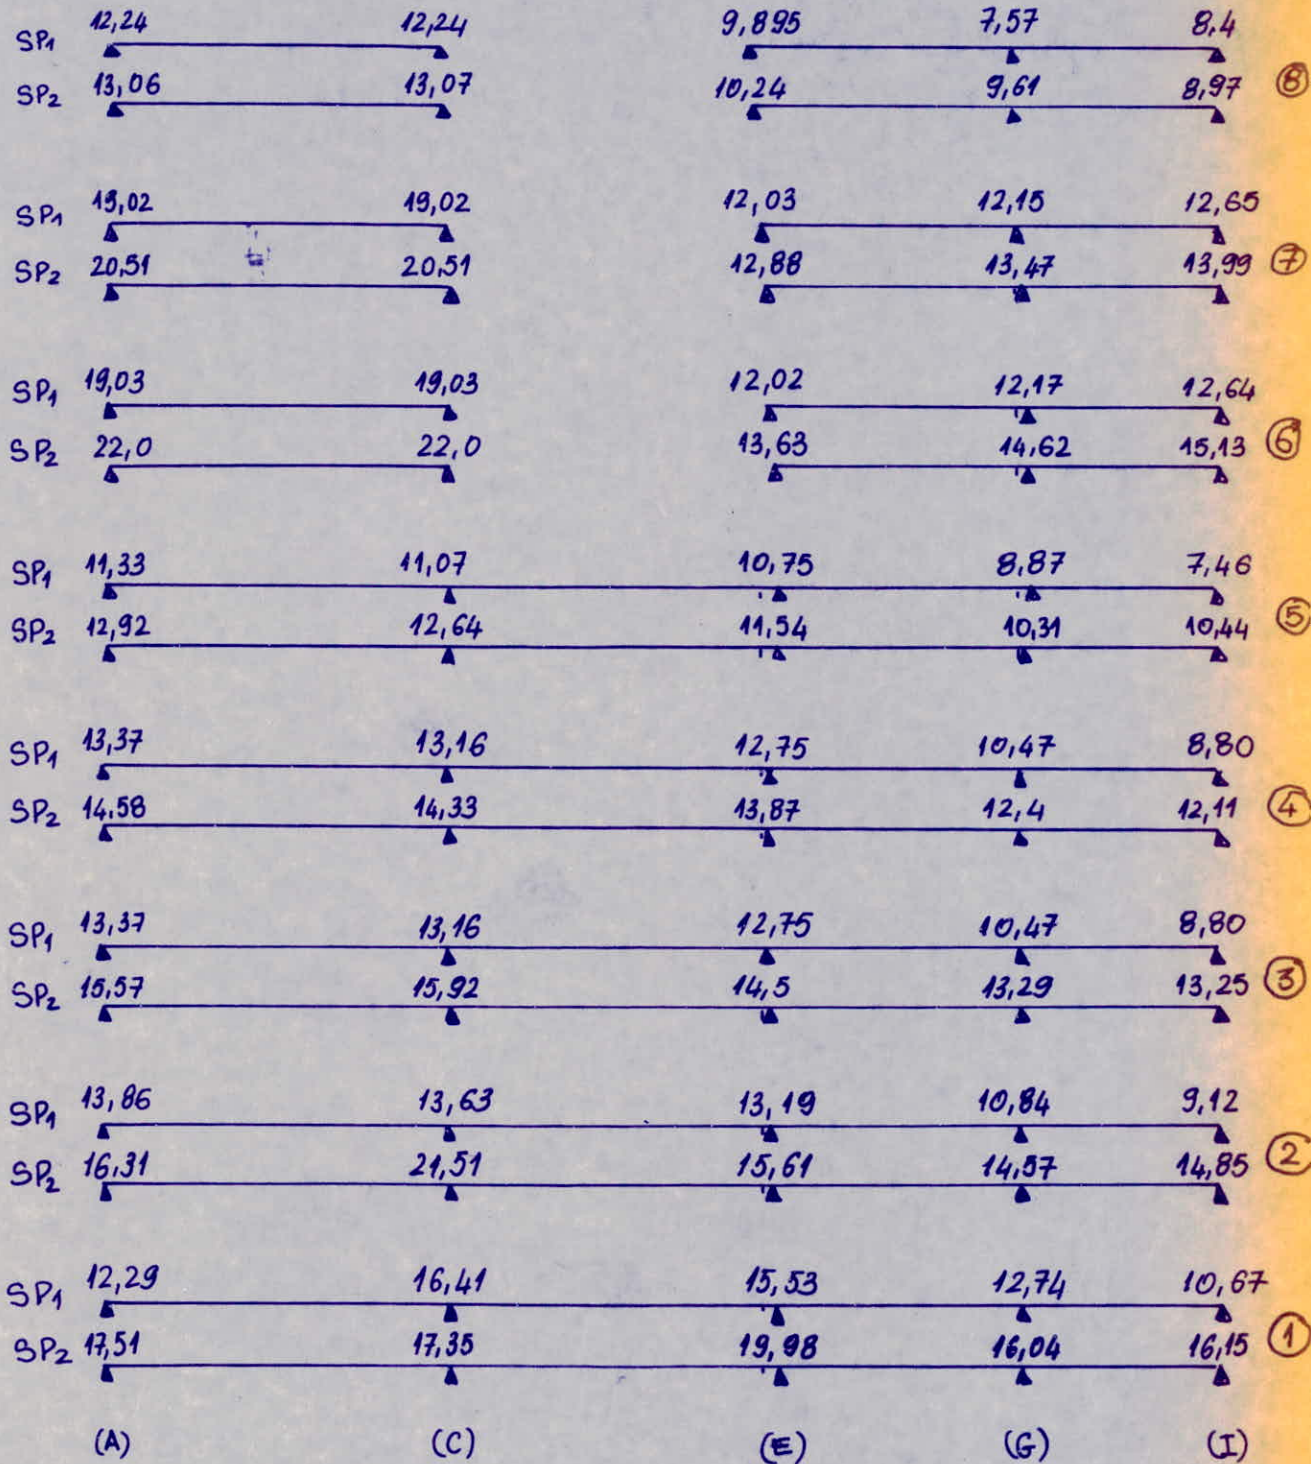 SP1 12,24 12,24 9,895 7,57 8,4
SP2 13,06 13,07 10,24 9,61 8,97 ⑧
SP1 19,02 19,02 12,03 12,15 12,65
SP2 20,51 20,51 12,88 13,47 13,99 ⑦
SP1 19,03 19,03 12,02 12,17 12,64
SP2 22,0 22,0 13,63 14,62 15,13 ⑥
SP1 11,33 11,07 10,75 8,87 7,46
SP2 12,92 12,64 11,54 10,31 10,44 ⑤
SP1 13,37 13,16 12,75 10,47 8,80
SP2 14,58 14,33 13,87 12,4 12,11 ④
SP1 13,37 13,16 12,75 10,47 8,80
SP2 15,57 15,92 14,5 13,29 13,25 ③
SP1 13,86 13,63 13,19 10,84 9,12
SP2 16,31 21,51 15,61 14,57 14,85 ②
SP1 12,29 16,41 15,53 12,74 10,67
SP2 17,51 17,35 19,98 16,04 16,15 ①
(A) (C) (E) (G) (I)